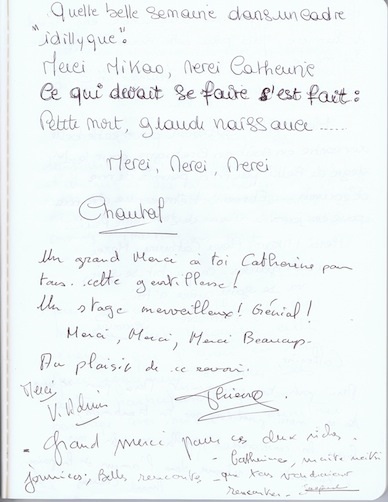 Quelle belle semaine dans un cadre
"idillyque".
Merci Mikao, Merci Catherine
Ce qui devait se faire s'est fait :
Petite mort, grande naissance .....
Merci, Merci, Merci
Chantal
Un grand Merci à toi Catherine pour
cette gentillesse !
Un stage merveilleux ! Génial !
Merci, Merci, Merci Beaucoup
Au plaisir de se revoir.
Merci
Grand merci pour ces deux riches
journées, Belles rencontres
Catherine,
rencontrer.